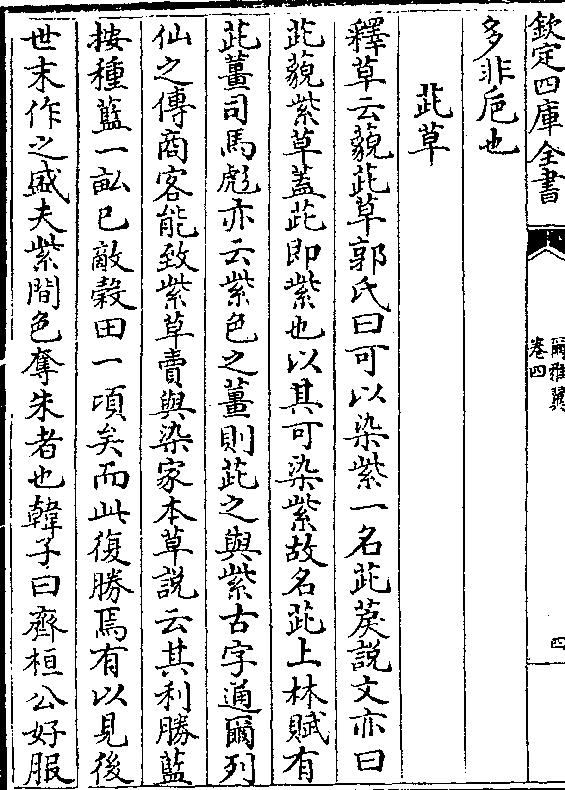 欽定四庫全書
爾雅翼
卷四
四
多非巵也
茈草
釋草云藐茈草郭氏曰可以染紫一名茈䓞說文亦曰
茈藐紫草蓋茈即紫也以其可染紫故名茈上林賦有
茈薑司馬彪亦云紫色之薑則茈之與紫古字通爾列
仙之傳商客能致紫草賣與染家本草說云其利勝藍
按種藍一畝已敵穀田一頃矣而此復勝焉有以見後
世末作之盛夫紫間色奪朱者也韓子曰齊桓公好服